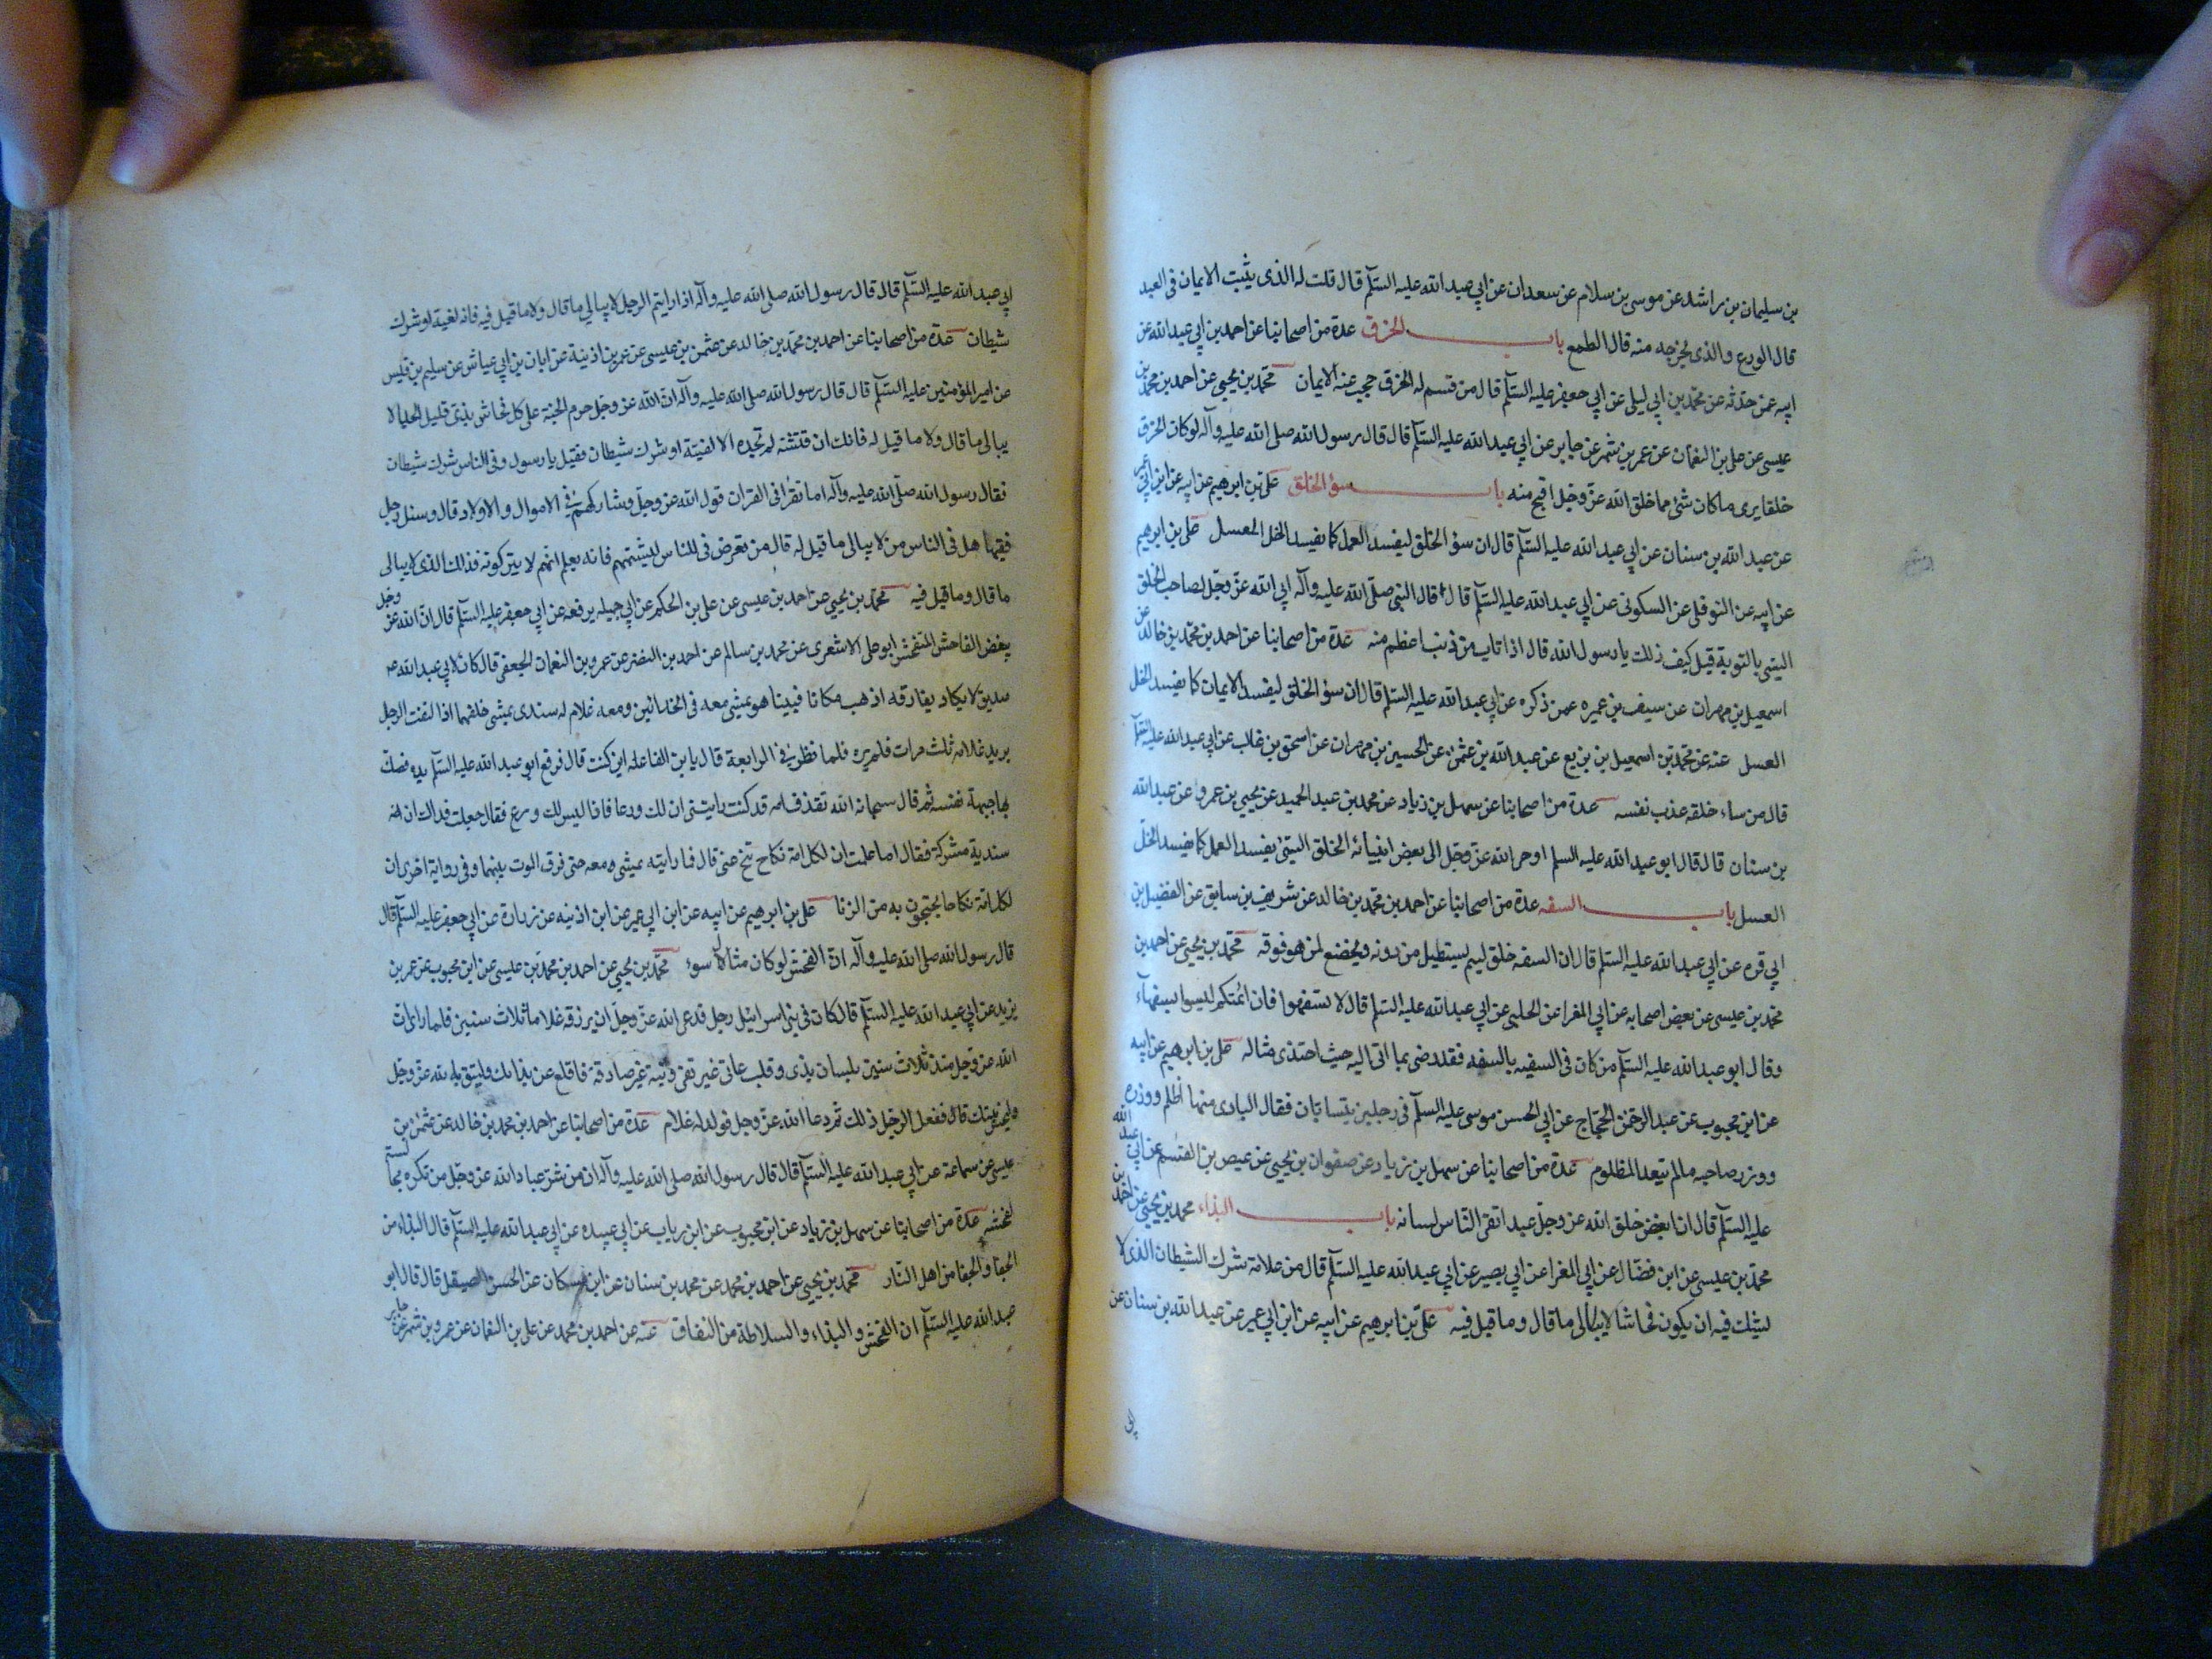 بن سليمان بن راشد عن موسى بن سلام عن سعدان عن ابي عبد الله عليه السلم قال قلت له الذى يثبت الايمان فى العبد
قال الورع والذى يخرجه منه قال الطمع باب الخرق عدة من اصحابنا عن احمد بن ابي عبد الله عن
ابيه عمن حدثه عن محمد بن ابي ليلى عن ابي جعفر عليه السلم قال من قسم له الخرق حجب عنه الايمان محمد بن يحيى عن احمد بن محمد بن
عيسى عن على بن النعمان عن عمر بن شمر عن جابر عن ابي عبد الله عليه السلم قال قال رسول الله صلى الله عليه وآله لو كان الخرق
خلقا يرى ما كان شئ مما خلق الله عز وجل اقبح منه باب سوء الخلق على بن ابرهيم عن ابيه عن ابن ابي عمير
عن عبد الله بن سنان عن ابي عبد الله عليه السلم قال ان سوء الخلق ليفسد العمل كما يفسد الخل العسل على بن ابرهيم
عن ابيه عن النوفلى عن السكونى عن ابي عبد الله عليه السلم قال قال النبى صلى الله عليه وآله ابى الله عز وجل لصاحب الخلق
السيئ بالتوبة قيل كيف ذلك يا رسول الله قال اذا تاب من ذنب اعظم منه عدة من اصحابنا عن احمد بن محمد بن خالد عن
اسمعيل بن مهران عن سيف بن عميره عمن ذكره عن ابي عبد الله عليه السلم قال ان سوء الخلق ليفسد الايمان كما يفسد الخل
العسل عنه عن محمد بن اسمعيل بن بزيع عن عبد الله بن عثمن عن الحسين بن مهران عن اسحق بن غالب عن ابي عبد الله عليه السلم
قال من ساء خلقه عذب نفسه عدة من اصحابنا عن سهل بن زياد عن محمد بن عبد الحميد عن يحيى بن عمرو عن عبد الله
بن سنان قال قال ابو عبد الله عليه السلم اوحى الله عز وجل الى بعض انبيائه الخلق السيئ يفسد العمل كما يفسد الخل
العسل باب السفه عدة من اصحابنا عن احمد بن محمد بن خالد عن شريف بن سابق عن الفضيل بن
ابي قره عن ابي عبد الله عليه السلم قال ان السفه خلق لئيم يستطيل من دونه ويخضع لمن هو فوقه محمد بن يحيى عن احمد بن
محمد بن عيسى عن بعض اصحابه عن ابي المغرا عن الحلبى عن ابي عبد الله عليه السلم قال لا تسفهوا فان ائمتكم ليسوا بسفهاء
وقال ابو عبد الله عليه السلم من كافى السفيه بالسفه فقد رضى بما اتى اليه حيث احتذى مثاله على بن ابرهيم عن ابيه
عن ابن محبوب عن عبد الرحمن الحجاج عن ابي الحسن موسى عليه السلم فى رجلين يتسابان فقال البادى منهما اظلم ووزره
ووزر صاحبه ما لم يتعد المظلوم عدة من اصحابنا عن سهل بن زياد عن صفوان بن يحيى عن عيص بن القسم عن ابي عبد الله
عليه السلم قال ان ابغض خلق الله عز وجل عبد اتقى الناس لسانه باب البذاء محمد بن يحيى عن احمد بن
محمد بن عيسى عن ابن فضال عن ابي المغرا عن ابي بصير عن ابي عبد الله عليه السلم قال من علامة شرك الشيطان الذى لا
ليشك فيه ان يكون فحاشا لا يبالى ما قال وما قيل فيه على بن ابرهيم عن ابيه عن ابن ابي عمير عن عبد الله بن سنان عن
ابي
ابي عبد الله عليه السلم قال قال رسول الله صلى الله عليه وآله اذا رايتم الرجل لا يبالى ما قال ولا ما قيل فيه فانه لغية او شرك
شيطان عدة من اصحابنا عن احمد بن محمد بن خالد عن عثمن بن عيسى عن عمر بن اذينة عن ابان بن ابي عياش عن سليم بن قيس
عن امير المؤمنين عليه السلم قال قال رسول الله صلى الله عليه وآله ان الله عز وجل حرم الجنة على كل فحاش بذى قليل الحياء لا
يبالى ما قال ولا ما قيل له فانك ان فتشته لم تجده الا لغية او شرك شيطان فقيل يا رسول وفى الناس شرك شيطان
فقال رسول الله صلى الله عليه وآله اما تقرا فى القران قول الله عز وجل وشاركهم فى الاموال والاولاد قال وسئل رجل
فقيها هل فى الناس من لا يبالى ما قيل له قال من تعرض فى للناس ليشتمهم فانه يعلم انهم لا يتركونه فذلك الذى لا يبالى
ما قال وما قيل فيه محمد بن يحيى عن احمد بن عيسى عن على بن الحكم عن ابي جميله يرفعه عن ابي جعفر عليه السلم قال ان الله عز وجل
يبغض الفاحش المتفحش ابو على الاشعرى عن محمد بن سالم عن احمد بن النضر عن عمرو بن النعمان الجعفى قال كان لابي عبد الله عه
صديق لا يكاد يفارقه اذ هب مكانا فبينا هو يمشى معه فى الحذائين ومعه غلام له سندى يمشى خلفهما اذا التفت الرجل
يريد غلامه ثلث مرات فلم يره فلما نظر فى الرابعة قال يا بن الفاعله اين كنت قال فرفع ابو عبد الله عليه السلم يده فصك
بها جبهة نفسه ثم قال سبحان الله تقذف امه قد كنت رايتنى ان لك ورعا فاذا ليس لك ورع فقال جعلت فداك ان امه
سندية مشركة فقال اما علمت ان لكل امة نكاح تنح عنى قال فما رايته يمشى معه حتى فرق الموت بينهما وفى رواية اخرى ان
لكل امة نكاحا يحتجبون به من الزنا على بن ابرهيم عن ابيه عن ابن ابي عمير عن ابن اذينه عن زرارة عن ابي جعفر عليه السلم قال
قال رسول الله صلى الله عليه وآله ان الفحش لو كان مثالا سوء محمد بن يحيى عن احمد بن محمد بن عيسى عن ابن محبوب عن عمر بن
يزيد عن ابي عبد الله عليه السلم قال كان فى بنى اسرائيل رجل فدعى الله عز وجل ان يرزقه غلاما ثلاث سنين فلما راى ان
الله عز وجل منذ ثلاث سنين بلسان بذى وقلب عاتى غير تقى ونية غير صادقة فاقلع عن بذائك وليتق الله عز وجل
نيتك قال ففعل الرجل ذلك ثم دعا الله عز وجل فولد له غلام عدة من اصحابنا عن احمد بن محمد بن خالد عن عثمن بن
عيسى عن سماعة عن ابي عبد الله عليه السلم قال قال رسول الله صلى الله عليه وآله ان من شر عباد الله عز وجل من تكره مجالسته
لفحشه عدة من اصحابنا عن سهل بن زياد عن ابن محبوب عن ابن رياب عن ابي عبيده عن ابي عبد الله عليه السلم قال البذاء من
الجفا والجفا من اهل النار محمد بن يحيى عن احمد بن محمد عن محمد بن سنان عن ابن مسكان عن الحسن الصيقل قال قال ابو
عبد الله عليه السلم ان الفحش والبذاء والسلاطة من النفاق عنه عن احمد بن محمد عن على بن النعمان عن عمرو بن شمر عن جابر